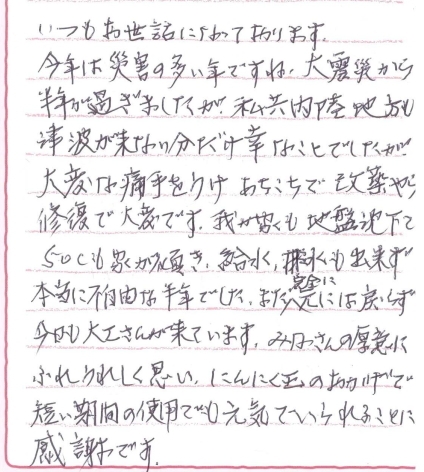 いつもお世話になっております。
今年は災害の多い年ですね。大震災から
半年が過ぎましたが、私共内陸地方も
津波が来ない分だけ幸なことでしたが
大変な痛手をうけ あちこちで改築やら
修復で大変です。我が家も地盤沈下で
50cも家が傾き、給水、排水も出来ず
本当に不自由な半年でした。まだ完全に元には戻らず
今日も大工さんが来ています。みなさんの厚意に
ふれうれしく思い、にんにく玉のおかげで
短い期間の使用でも元気でいられることに
感謝です。